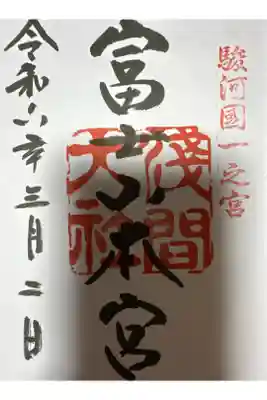 駿河國一之宮
富士本宮
淺間大社
令和六年三月二日